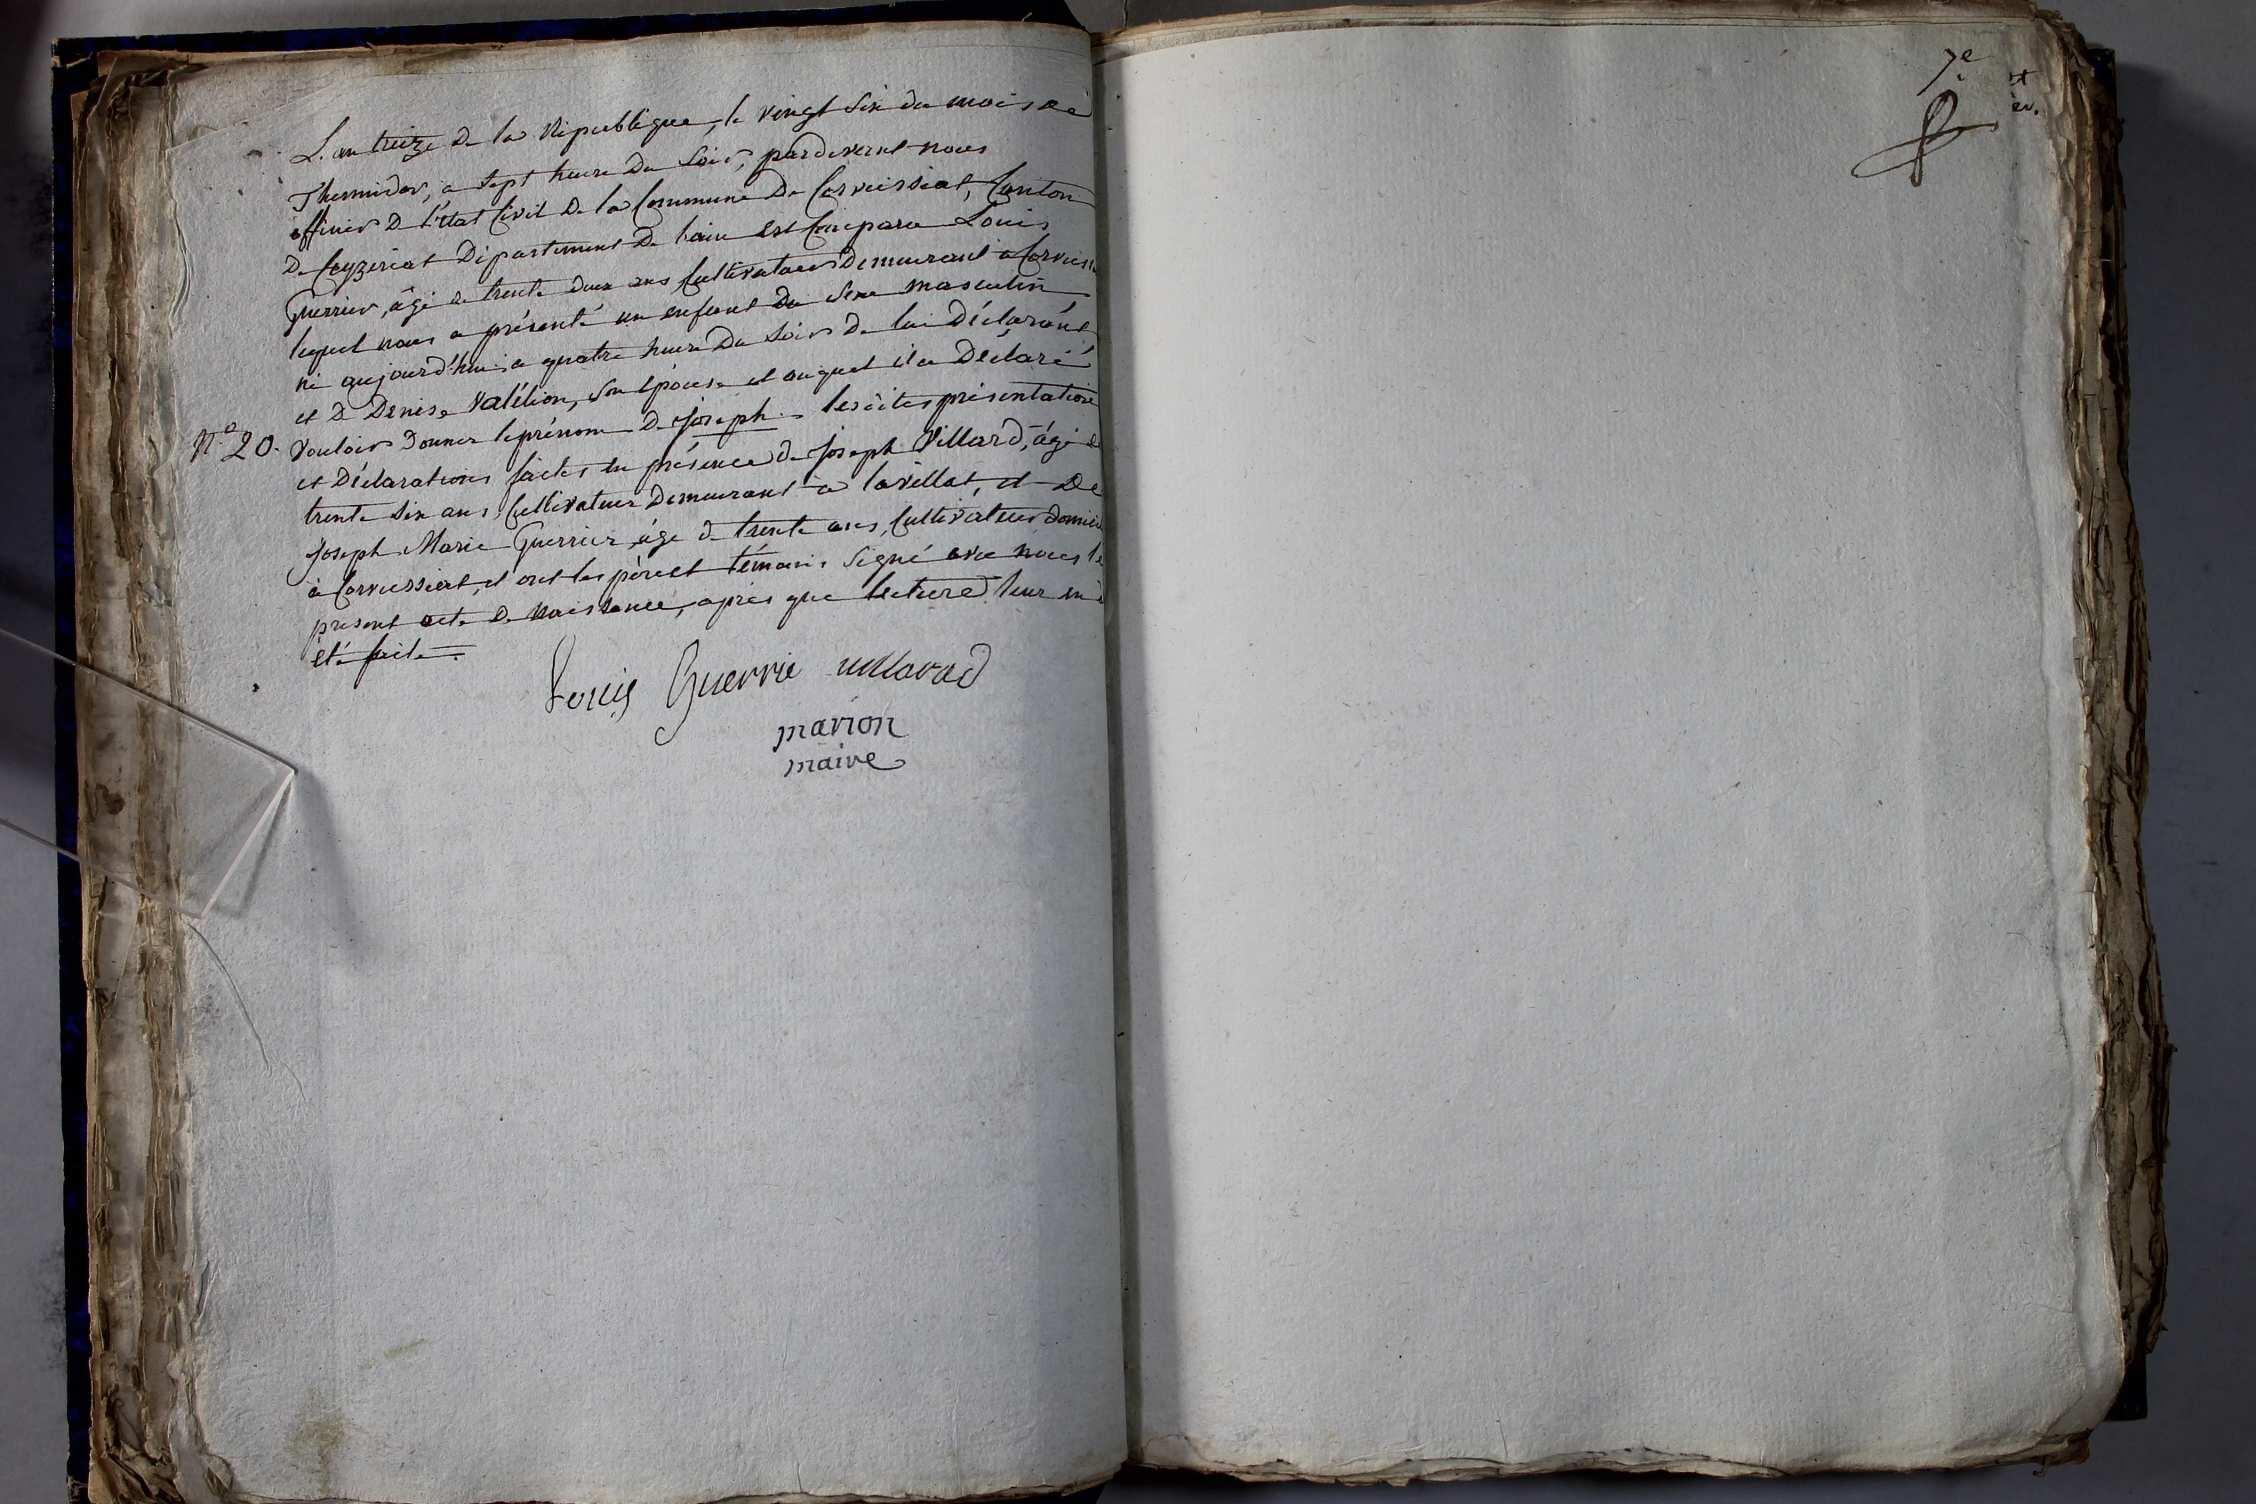 L'an treize de la République, le vingt six du mois de
Thermidor, à sept heure du soir, pardevant nous
officier de l'état Civil de la Commune de Corveissiat, Canton
de Ceyzeriat Département de l'ain est Comparu Louis
Guerrier, âgé de trente deux ans Cultivateur Demeurant à Corveissi
lequel nous a présenté un enfant du sexe masculin
né aujourd'hui à quatre heure du soir de lui Déclarant
et de Denise Valélion, son épouse et auquel il a Déclaré
N.o 20. vouloir donner le prénom de Joseph. lesdites présentations
et Déclarations faites en présence de Joseph Villard, âgé de
trente six ans, Cultivateur Demeurant à lavillat, et de
Joseph Marie Guerrier, âgé de trente ans, Cultivateur domici
à Corveissiat, et ont les père et témoins signé avec nous le
present acte de naissance, après que lecture leur en à
été faite.
Louis Guerrie uillarad
marion
maire
7e